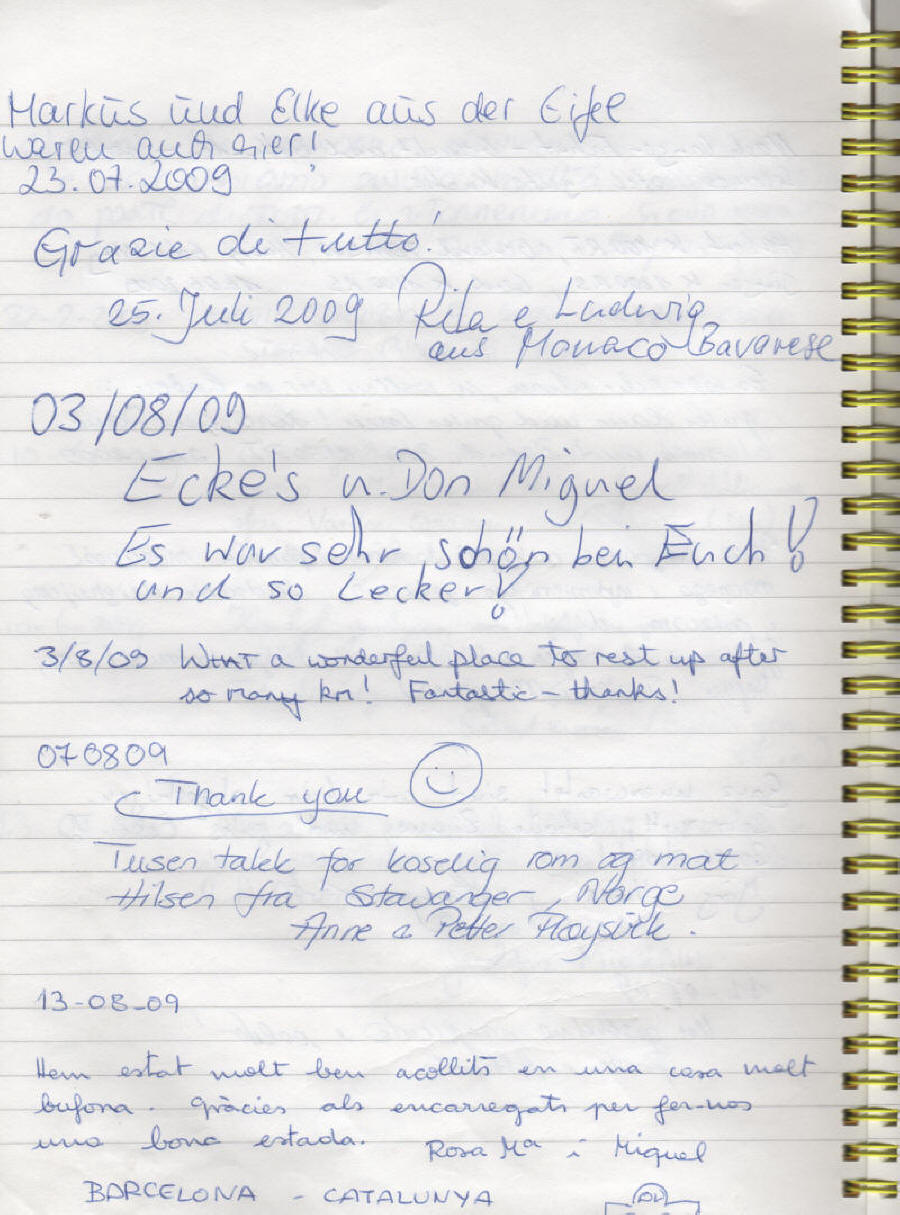 Markus und Elke aus der Eifel
waren auch hier!
23.07.2009
Grazie di tutto!
25. Juli 2009 Rita e Ludwig
aus Monaco Bavarese
03/08/09
Ecke's u. Don Miguel
Es war sehr schön bei Euch!
und so Lecker!
3/8/09 WHAT a wonderful place to rest up after
so many km! Fantastic - thanks!
070809
Thank you
Tusen takk for koselig rom og mat
Hilsen fra Stavanger, Norge
Anne & Petter
13-08-09
Hem estat molt ben acollits en una casa molt
bufona. Gràcies als encarregats per fer-nos
una bona estada. Rosa Mª i Miquel
BARCELONA - CATALUNYA